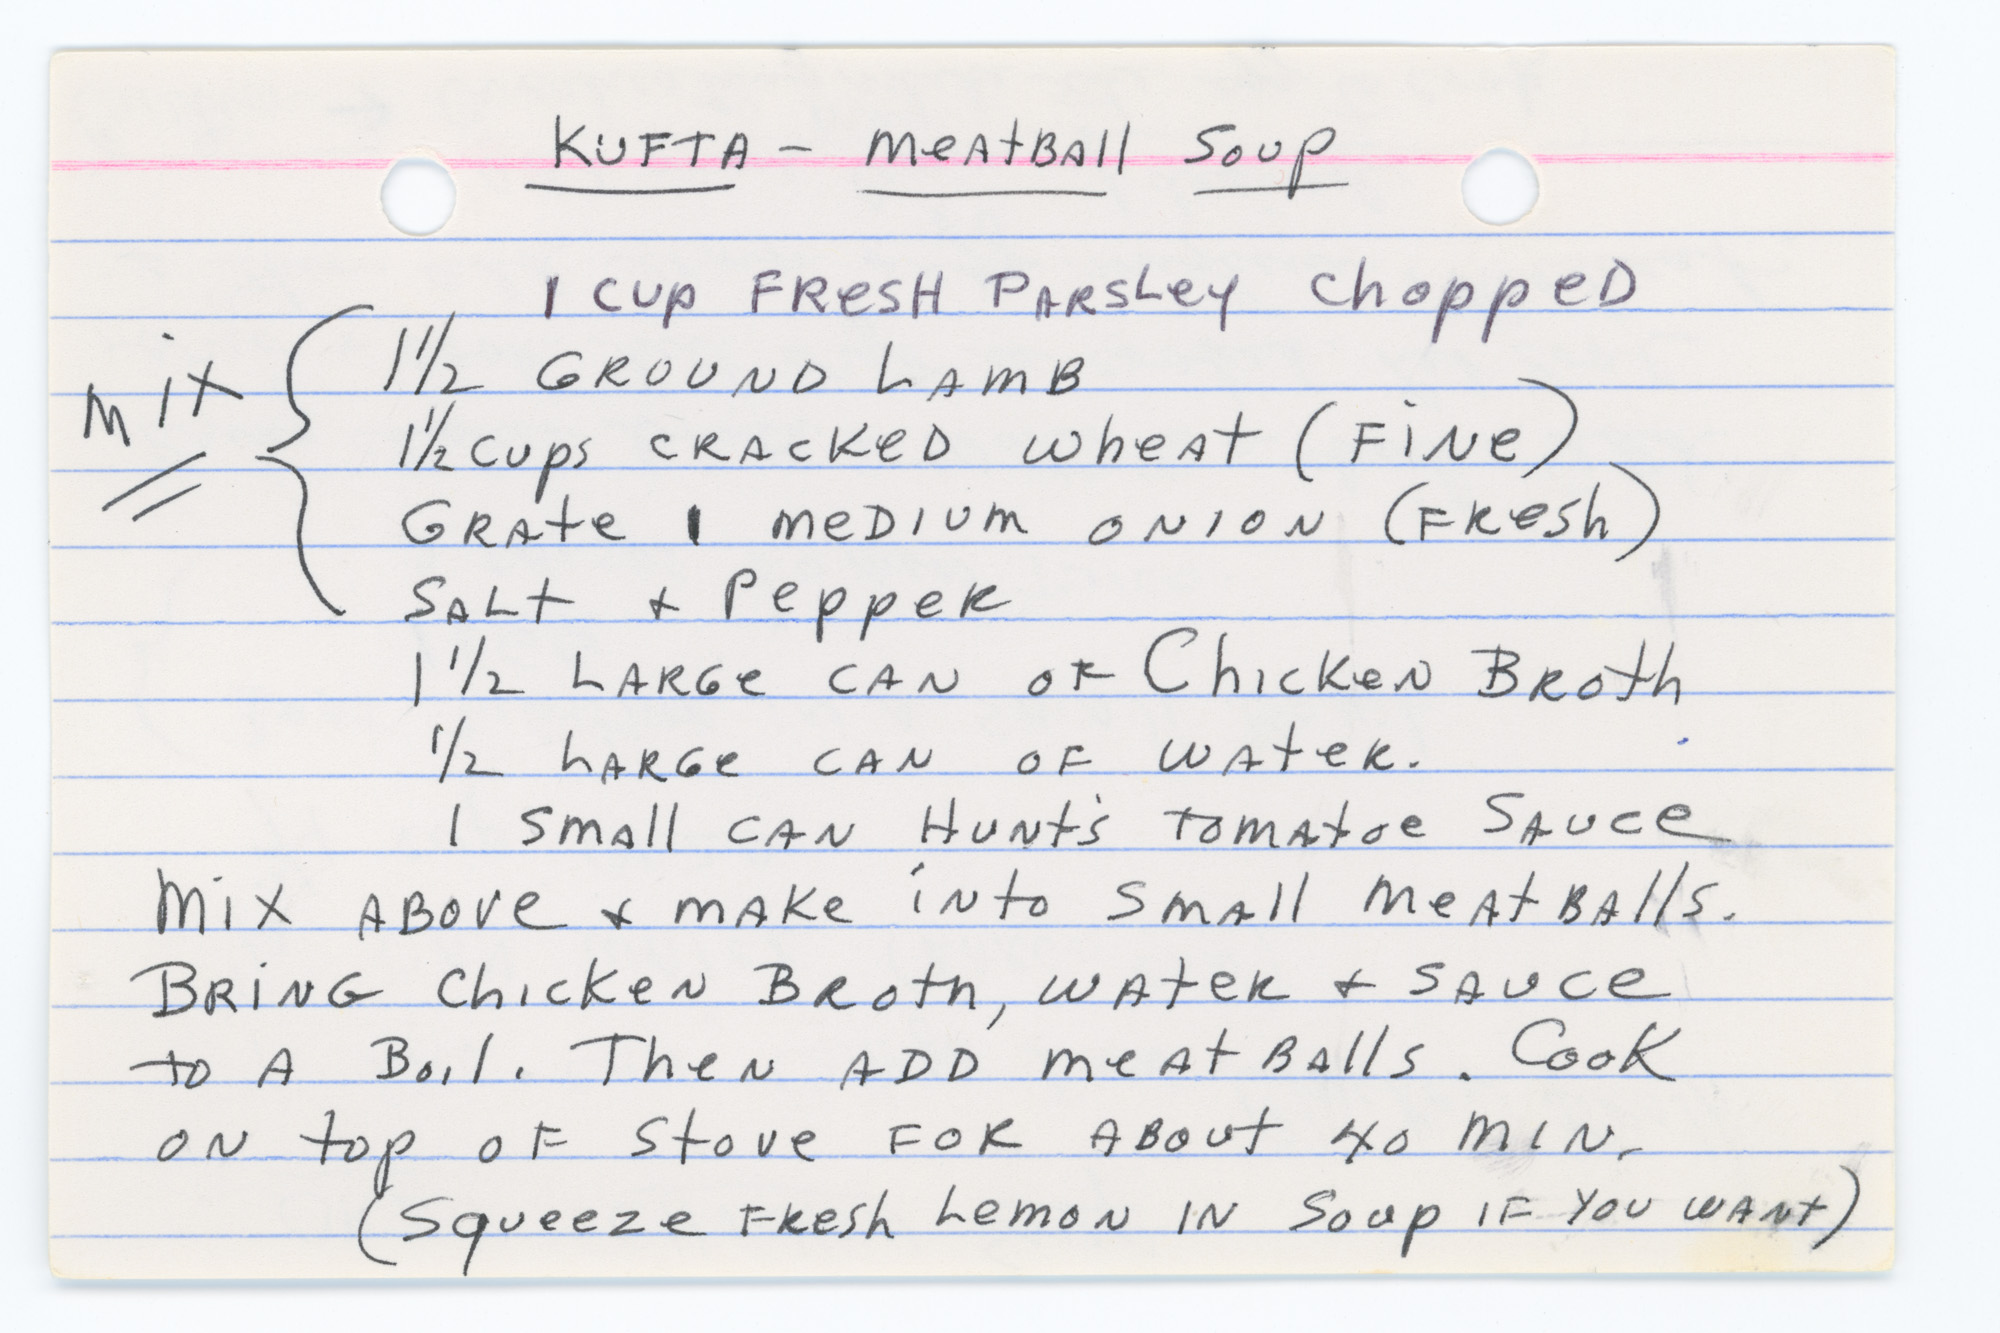 KUFTA - MEATBALL SOUP
1 CUP FRESH PARSLEY CHOPPED
1 1/2 GROUND LAMB
MIX
1 1/2 CUPS CRACKED WHEAT (FINE)
GRATE 1 MEDIUM ONION (FRESH)
SALT + PEPPER
1 1/2 LARGE CAN OF CHICKEN BROTH
1/2 LARGE CAN OF WATER.
1 SMALL CAN HUNT'S TOMATOE SAUCE
MIX ABOVE + MAKE INTO SMALL MEATBALLS.
BRING CHICKEN BROTH, WATER + SAUCE
TO A BOIL. THEN ADD MEATBALLS. COOK
ON TOP OF STOVE FOR ABOUT 40 MIN.
(SQUEEZE FRESH LEMON IN SOUP IF YOU WANT)